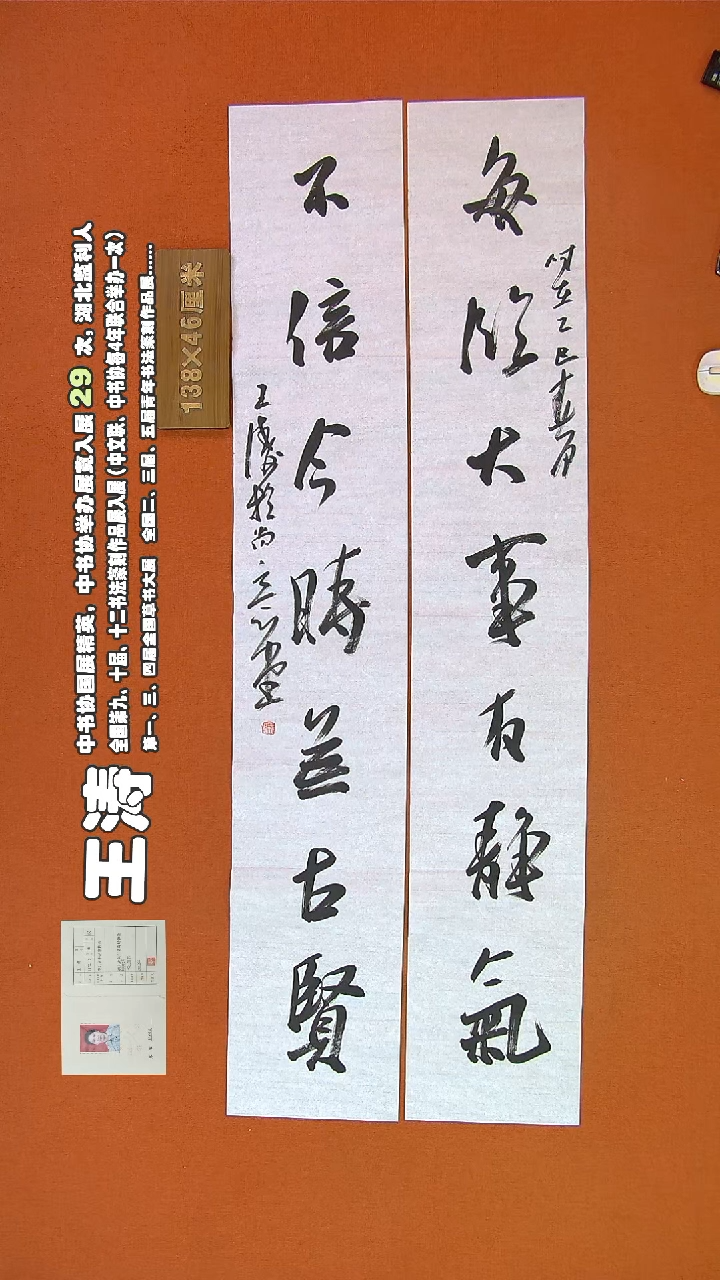 每臨大事有靜氣
時在乙巳春月
不信今時無古賢
王濤於尚意堂
138×46厘米
王涛
中书协国展精英，中书协举办展赛入展 29 次，湖北监利人
全国第九、十届、十二书法篆刻作品展入展（中文联、中书协每4年联合举办一次）
第一、三、四届全国草书大展 全国二、三届、五届青年书法篆刻作品展……